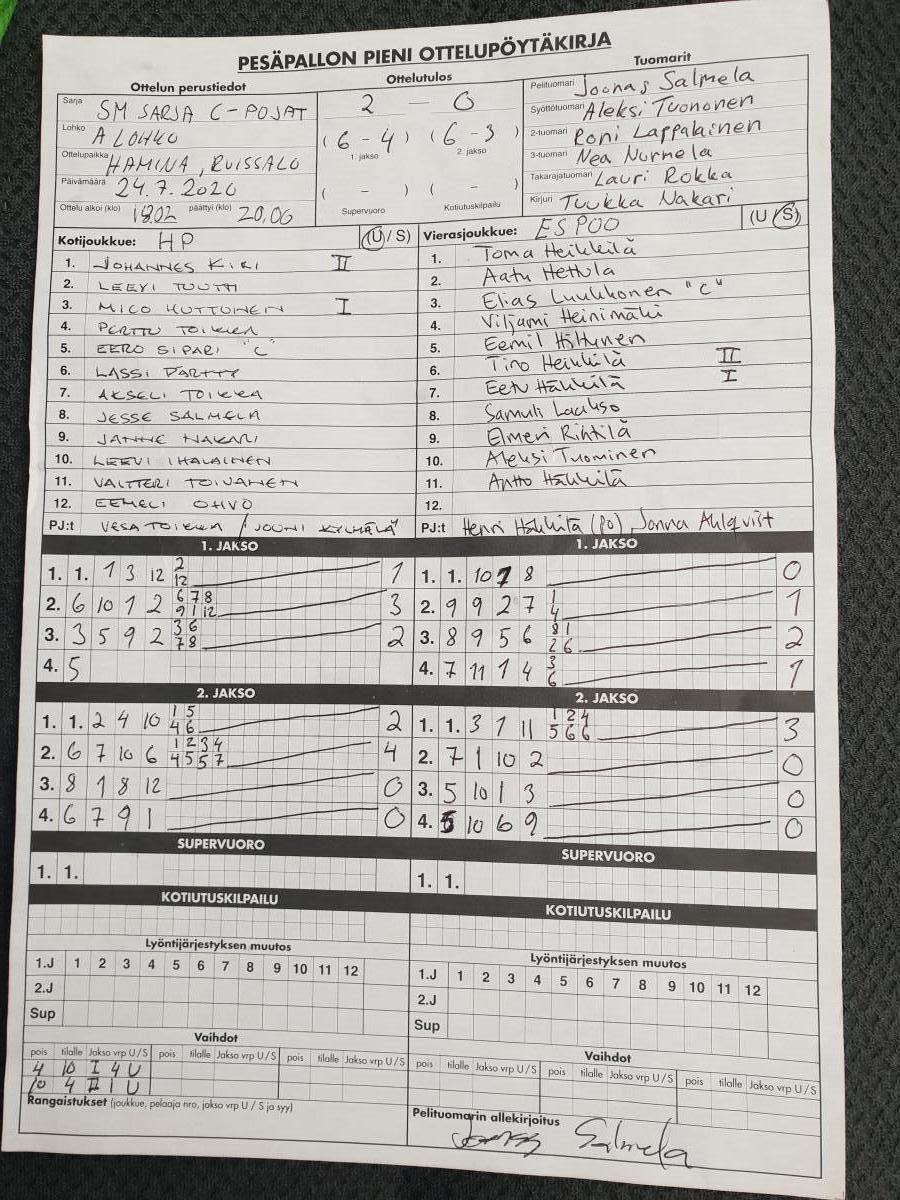 PESÄPALLON PIENI OTTELUPÖYTÄKIRJA
Ottelun perustiedot
Sarja SM SARJA C-POJAT
Lohko A LOHKO
Ottelupaikka HAMINA, RUISSALO
Päivämäärä 24.7.2020
Ottelu alkoi (klo) 18.02 päättyi (klo) 20.06
Ottelutulos
2 — 0
(6 - 4) (6 - 3)
1. jakso 2. jakso
( - ) ( - )
Supervuoro Kotiutuskilpailu
Tuomarit
Pelituomari Joonas Salmela
Syöttötuomari Aleksi Tuononen
2-tuomari Roni Lappalainen
3-tuomari Nea Nurmela
Takarajatuomari Lauri Rokka
Kirjuri Tuukka Nakari
Kotijoukkue: HP (U/S)
1. JOHANNES KIRI II
2. LEEVI TUUTTI
3. MICO HUTTUNEN I
4. PERTTU TOIKKA
5. EERO SIPARI "C"
6. LASSI PARTTY
7. AKSELI TOIKKA
8. JESSE SALMELA
9. JANNE NAKARI
10. LEEVI IHALAINEN
11. VALTTERI TOIVANEN
12. EEMELI OHVO
PJ:t VESA TOIKKA / JOUNI KYLMÄLÄ
Vierasjoukkue: ESPOO (U/S)
1. Toma Heikkilä
2. Aatu Hettula
3. Elias Luukkonen "C"
4. Viljami Heinimäki
5. Eemil Hiltunen
6. Tino Heikkilä II
7. Eetu Häkkilä I
8. Samuli Laakso
9. Elmeri Rihtilä
10. Aleksi Tuominen
11. Antto Häkkilä
12.
PJ:t Henri Häkkilä (PO), Janna Ahlqvist
1. JAKSO
1. 1. 1 3 12 2 12 1
2. 6 10 1 2 6 7 8 9 1 12 3
3. 3 5 9 2 3 6 7 8 2
4. 5
1. JAKSO
1. 1. 10 7 8 0
2. 9 9 2 7 1 4 1
3. 8 9 5 6 8 1 2 6 2
4. 7 11 1 4 3 6 1
2. JAKSO
1. 1. 2 4 10 1 5 4 6 2
2. 6 7 10 6 1 2 3 4 4 5 5 7 4
3. 8 1 8 12 0
4. 6 7 9 1 0
2. JAKSO
1. 1. 3 1 11 1 2 4 5 6 6 3
2. 7 1 10 2 0
3. 5 10 1 3 0
4. 5 10 6 9 0
SUPERVUORO
1. 1.
SUPERVUORO
1. 1.
KOTIUTUSKILPAILU
KOTIUTUSKILPAILU
Lyöntijärjestyksen muutos
1.J 1 2 3 4 5 6 7 8 9 10 11 12
2.J
Sup
Lyöntijärjestyksen muutos
1.J 1 2 3 4 5 6 7 8 9 10 11 12
2.J
Sup
Vaihdot
pois tilalle Jakso vrp U/S pois tilalle Jakso vrp U/S pois tilalle Jakso vrp U/S
4 10 I 4 U
10 4 II 1 U
Vaihdot
pois tilalle Jakso vrp U/S pois tilalle Jakso vrp U/S pois tilalle Jakso vrp U/S
Rangaistukset (joukkue, pelaaja nro, jakso vrp U / S ja syy)
Pelituomarin allekirjoitus
Salmela